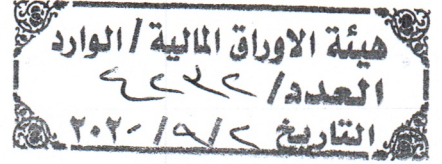 هيئة الاوراق المالية / الوارد
العدد / ٤٢٣٢
التاريخ ٢ / ٩ / ٢٠٢٠